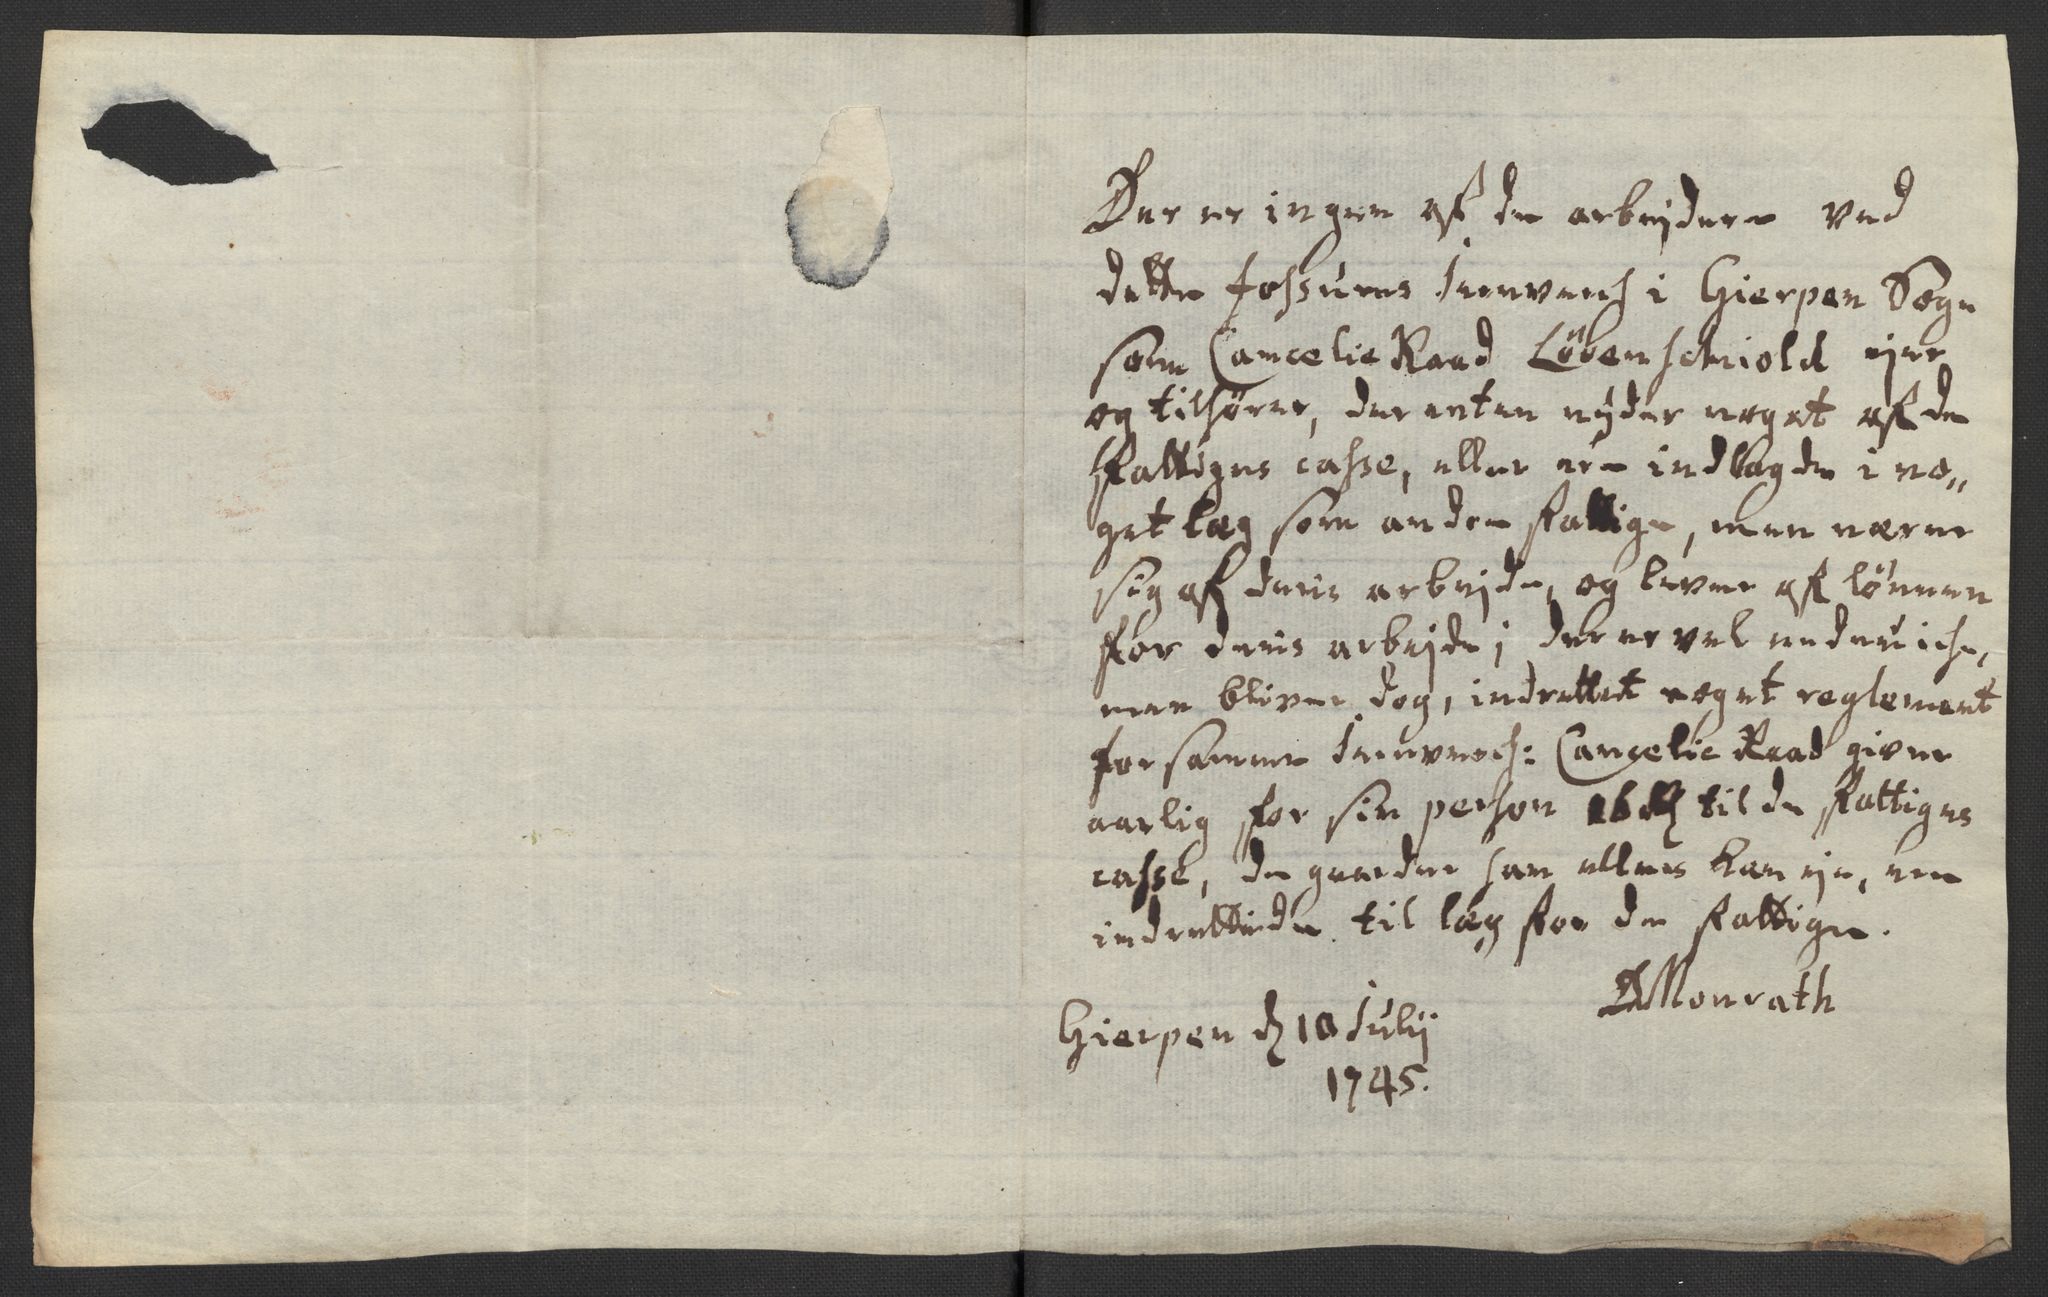 Der er ingen af de arbejdere ved
dette Fossums Jernverch i Gierpen Sogn
som Cancelie Raad Löwenschiold ejer
og tilhører, der enten nyder noget af de
Fattiges casse, eller ere indlagde i no„
get læg som andre fattige, men nærer
sig af deris arbejde, og lever af lønnen
for deris arbejde; der er vel endnu iche,
men bliver dog, indrettet noget reglement
for samme Jernverch: Cancelie Raad giver
aarlig for sin person 16 rdlr til de fattiges
casse, de gaarder han ellers kan eje, ere
indrettede til læg for de fattige.
DMonrath
Gierpen d 10 Julij
1745.